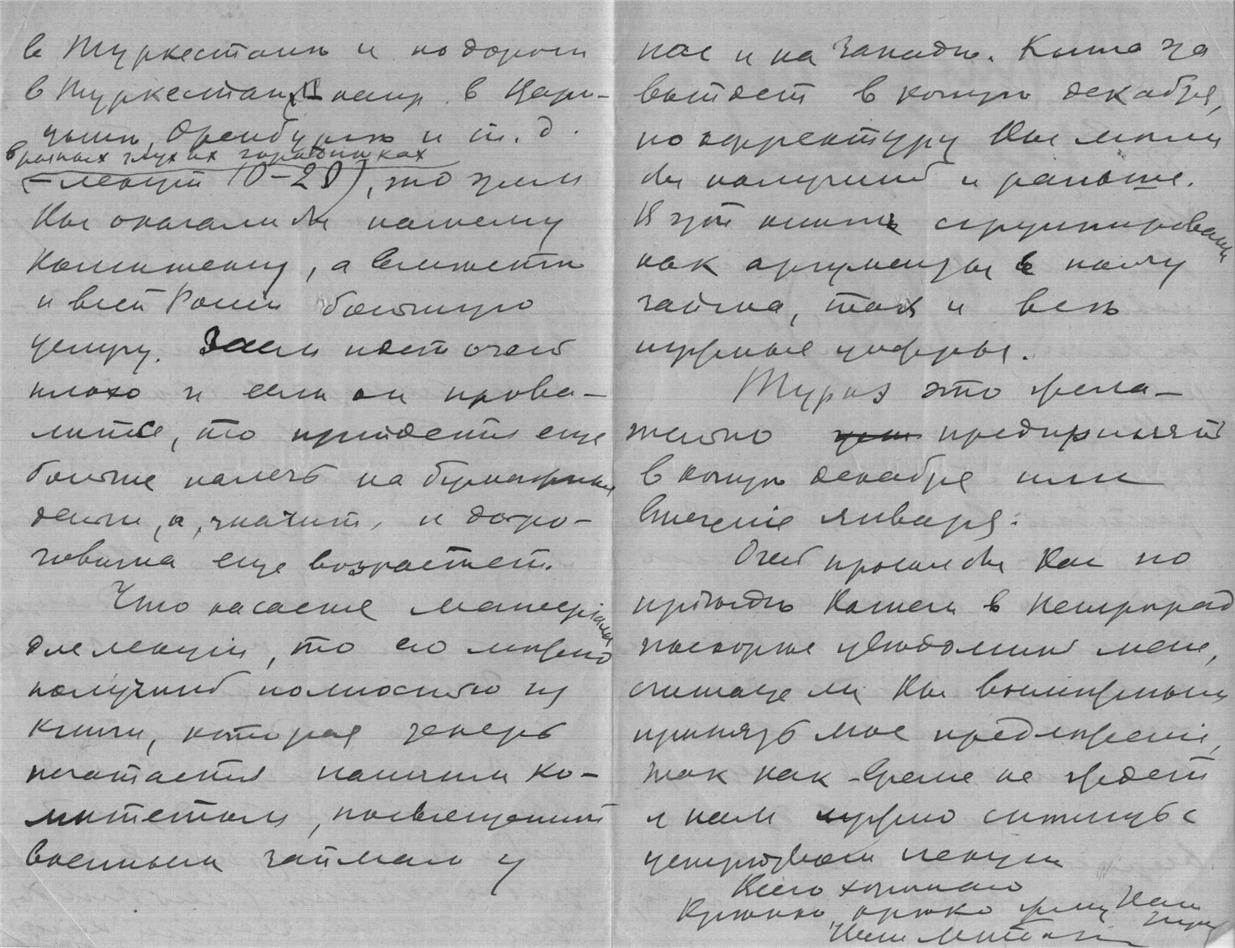 в Туркестань и по дороги
в Туркестан, напр. в Цари-
цынь, Оренбургь и т. д.
в разных глухих городишках
(— лекций 10-20), то этим
Вы оказали бы нашему
Комитету, а вместе
и всей Россіи большую
услугу. Заем идет очень
плохо и если он прова-
лится, то придется еще
больше налечь на бумажныя
деньги, а, значит, и доро-
говизна еще возрастет.
Что касается матеріала
для лекцій, то его можно
получить полностью из
книги, которая теперь
печатается нашим Ко-
митетом, посвященной
военным займам у
нас и на Западь. Книга эта
выйдет в концу декабря,
но корректуру Вы могли
бы получить и раньше.
В этой книгь сгруппированы
как аргументы в пользу
займа, так и всь
нужныя цифры.
Турнэ это жела-
тельно предпринять
в концу декабря или
втеченіе января.
Очень просил бы Вас по
пріьздь Вашем в Петроград
поскорье увьдомить меня,
считаете ли Вы возможным
принять мое предложеніе,
так как время не ждет
и нам нужно спешить с
устройством лекций
Всего хорошаго
Крепко, крепко жму Вашу
руку